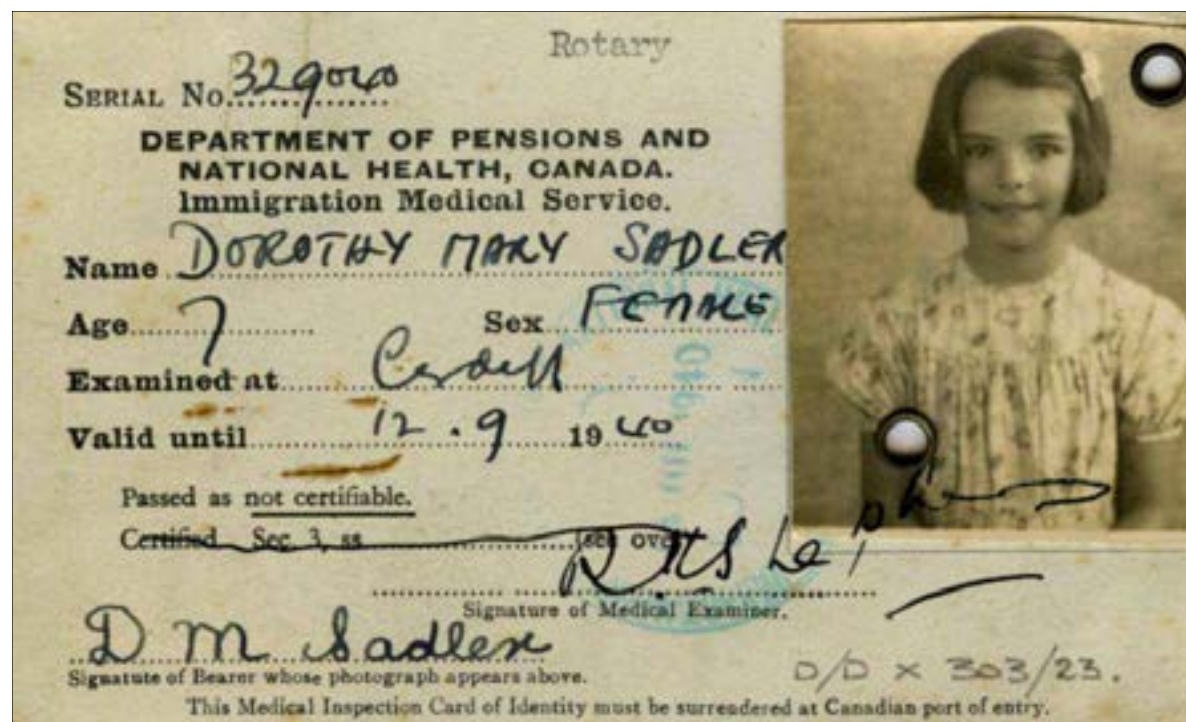 Rotary
SERIAL No. 32900
DEPARTMENT OF PENSIONS AND
NATIONAL HEALTH, CANADA.
Immigration Medical Service.
Name DOROTHY MARY SADLER
Age 7 Sex FEMALE
Examined at Cardiff
Valid until 12.9 1940
Passed as not certifiable.
Certified Sec. 3, ss (see over
Signature of Medical Examiner.
D M Sadler
Signature of Bearer whose photograph appears above.
D/D x 303/23.
This Medical Inspection Card of Identity must be surrendered at Canadian port of entry.